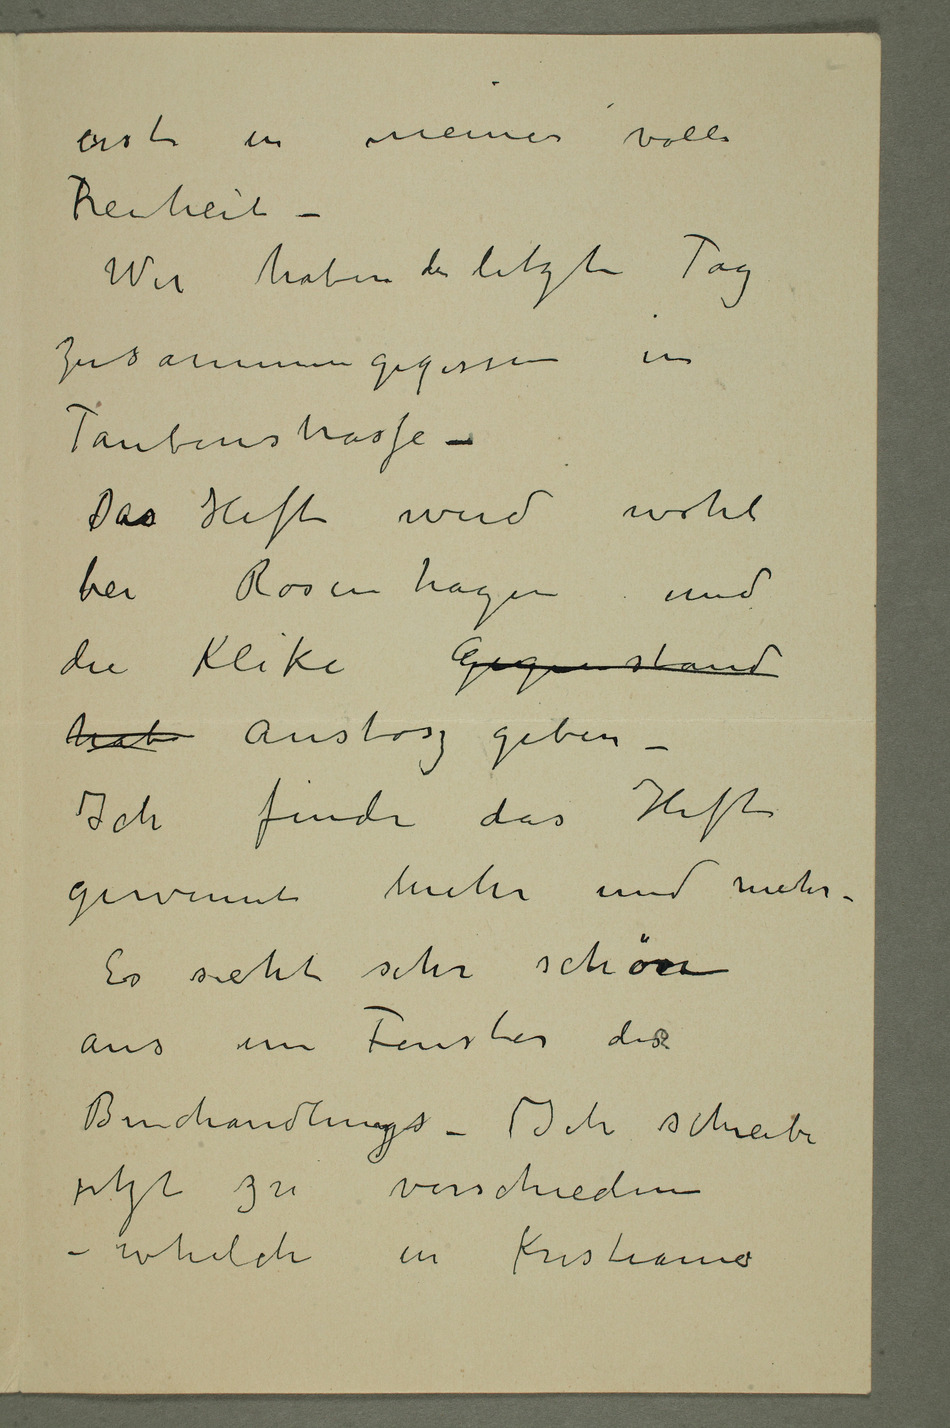 erst in meiner volle
Freiheit –
Wir haben den letzte Tag
zusammengegessen in
Taubenstrasse –
Das Heft wird wohl
bei Rosenhagen und
die Klike Gegenstand
hab anstosz geben –
Ich finde das Heft
gewinnt mehr und mehr –
Es sieht sehr schön
aus im Fenster des
Buchandlungs – Ich schreibe
jetzt zu verschiedene
– whelche in Kristiania